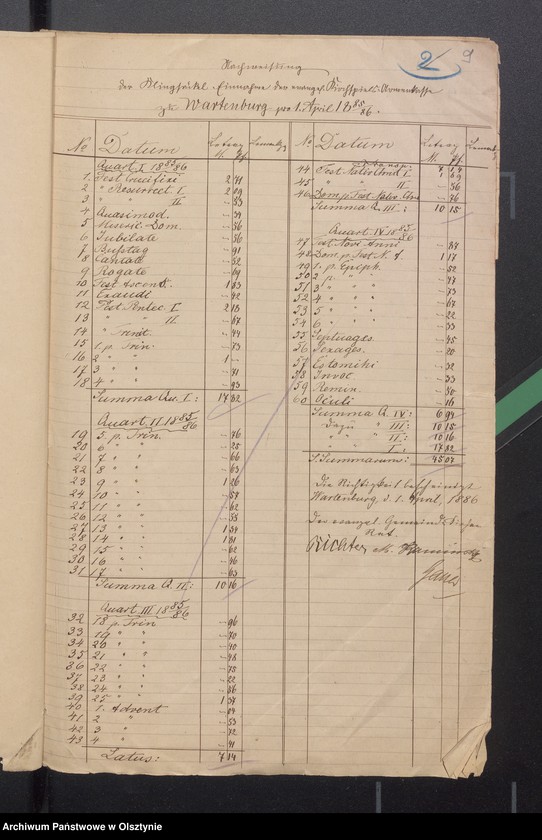 2
9
Nachweisung
der Klingsäckel-Einnahme der evangel. Kirchspiels-Armenkasse
zu Wartenburg pro 1. April 1885/86.
No Datum Betrag M. Pf.
Quart. I 1885/86
1. Fest Crucifixi 2 41
2 " Resurrect I. 2 09
3 " " II — 53
4 Quasimod. — 34
5 Miseric. Dom. — 56
6 Jubilate — 56
7 Busstag — 91
8 Cantate — 52
9 Rogate — 19
10 Fest Ascens. 1 33
11 Exaudi — 42
12 Fest Pentec. I 2 13
13 " " II — 67
14 " Trinit. — 44
15 1. p. Trin. — 73
16 2 " " 1 —
17 3 " " — 71
18 4 " " — 93
Summa Qu. I: 17 82
Quart II 1885/86
19 5. p. Trin. — 46
20 6 " " — 20
21 7 " " — 66
22 8 " " — 63
23 9 " " 1 26
24 10 " " — 57
25 11 " " — 62
26 12 " " — 55
27 13 " " 1 34
28 14 " " 1 31
29 15 " " — 62
30 16 " " — 96
31 17 " " — 63
Summa Q. II: 10 16
Quart III 1885/86
32 18 p. Trin — 96
33 19 " " — 70
34 20 " " — 40
35 21 " " — 48
36 22 " " — 75
37 23 " " — 22
38 24 " " — 86
39 25 " " 1 37
40 1. Advent — 84
41 2 " — 53
42 3 " — 72
43 4 " — 41
Latus: 7 14
No Datum Betrag M. Pf.
Transp. 7 14
44 Fest Nativ. Chri I. 1 69
45 " " II — 56
46 Dom. p. Fest. Nativ. Chri — 76
Summa Q. III: 10 15
Quart. IV 1885/86
47 Fest. Novi Anni — 37
48 Dom. p. Fest. N. A. 1 17
49 1. p. Epiph. — 52
50 2 p. " — 47
51 3 " " — 73
52 4 " " — 67
53 5 " " — 22
54 6 " " — 33
55 Septuages. — 45
56 Sexages. — 20
57 Estomihi — 32
58 Invoc. — 33
59 Remin. — 30
60 Oculi — 16
Summa Q. IV: 6 94
Dazu " III: 10 15
" " II: 10 16
" " I: 17 82
S. Summarum: 45 07
Die Richtigkeit bescheinigt
Wartenburg d. 1. April, 1886
Der evangel. Gemeinde-Kirchen
Rat.
Richter
Archiwum Państwowe w Olsztynie